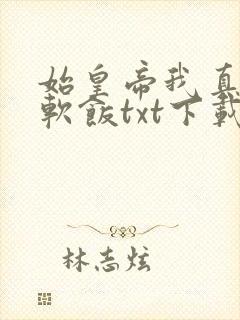 始皇帝我真
軟飯txt下載
林志炫